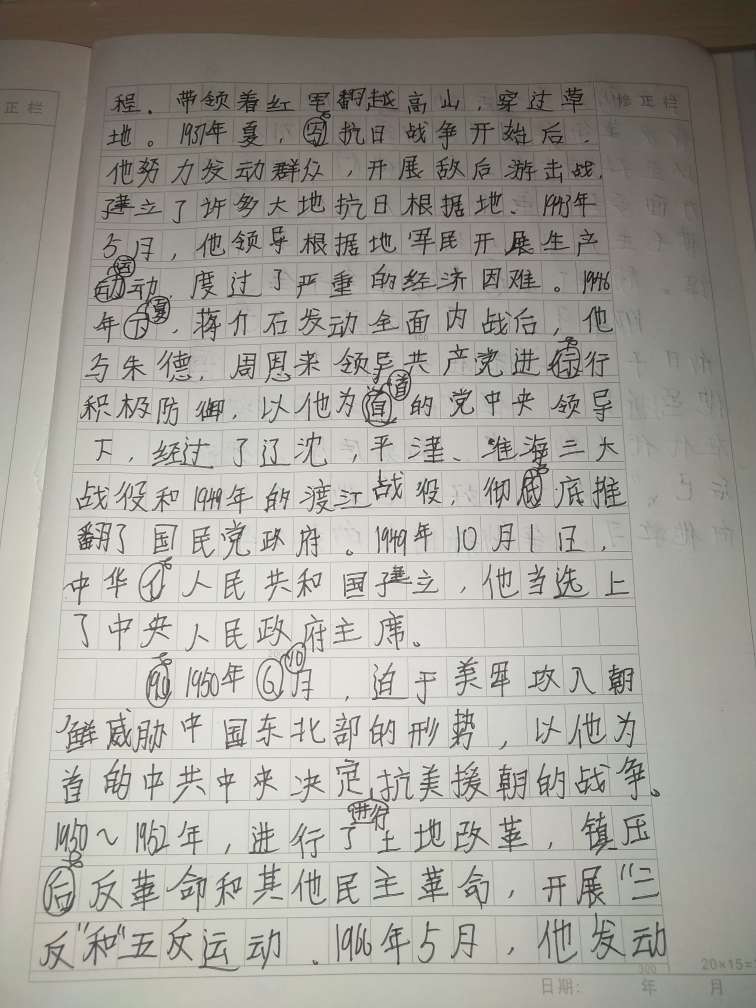 正栏
修正栏
程、带领着红军翻越高山,穿过草
地。1937年夏,抗日战争开始后,
他努力发动群众,开展敌后游击战,
建立了许多大地抗日根据地、1943年
5月,他领导根据地军民开展生产
运动,度过了严重的经济困难。1946
年夏,蒋介石发动全面内战后,他
与朱德,周恩来领导共产党进行
积极防御,以他为首的党中央领导
下,经过了辽沈,平津、淮海三大
战役和1949年的渡江战役,彻底推
翻了国民党政府。1949年10月1日,
中华人民共和国建立,他当选上
了中央人民政府主席。
1950年10月,迫于美军攻入朝
鲜威胁中国东北部的形势,以他为
首的中共中央决定进行抗美援朝的战争。
1950~1952年,进行了土地改革,镇压
反革命和其他民主革命,开展“三
反”和“五反运动、1966年5月,他发动
300
20×15=
日期: 年 月